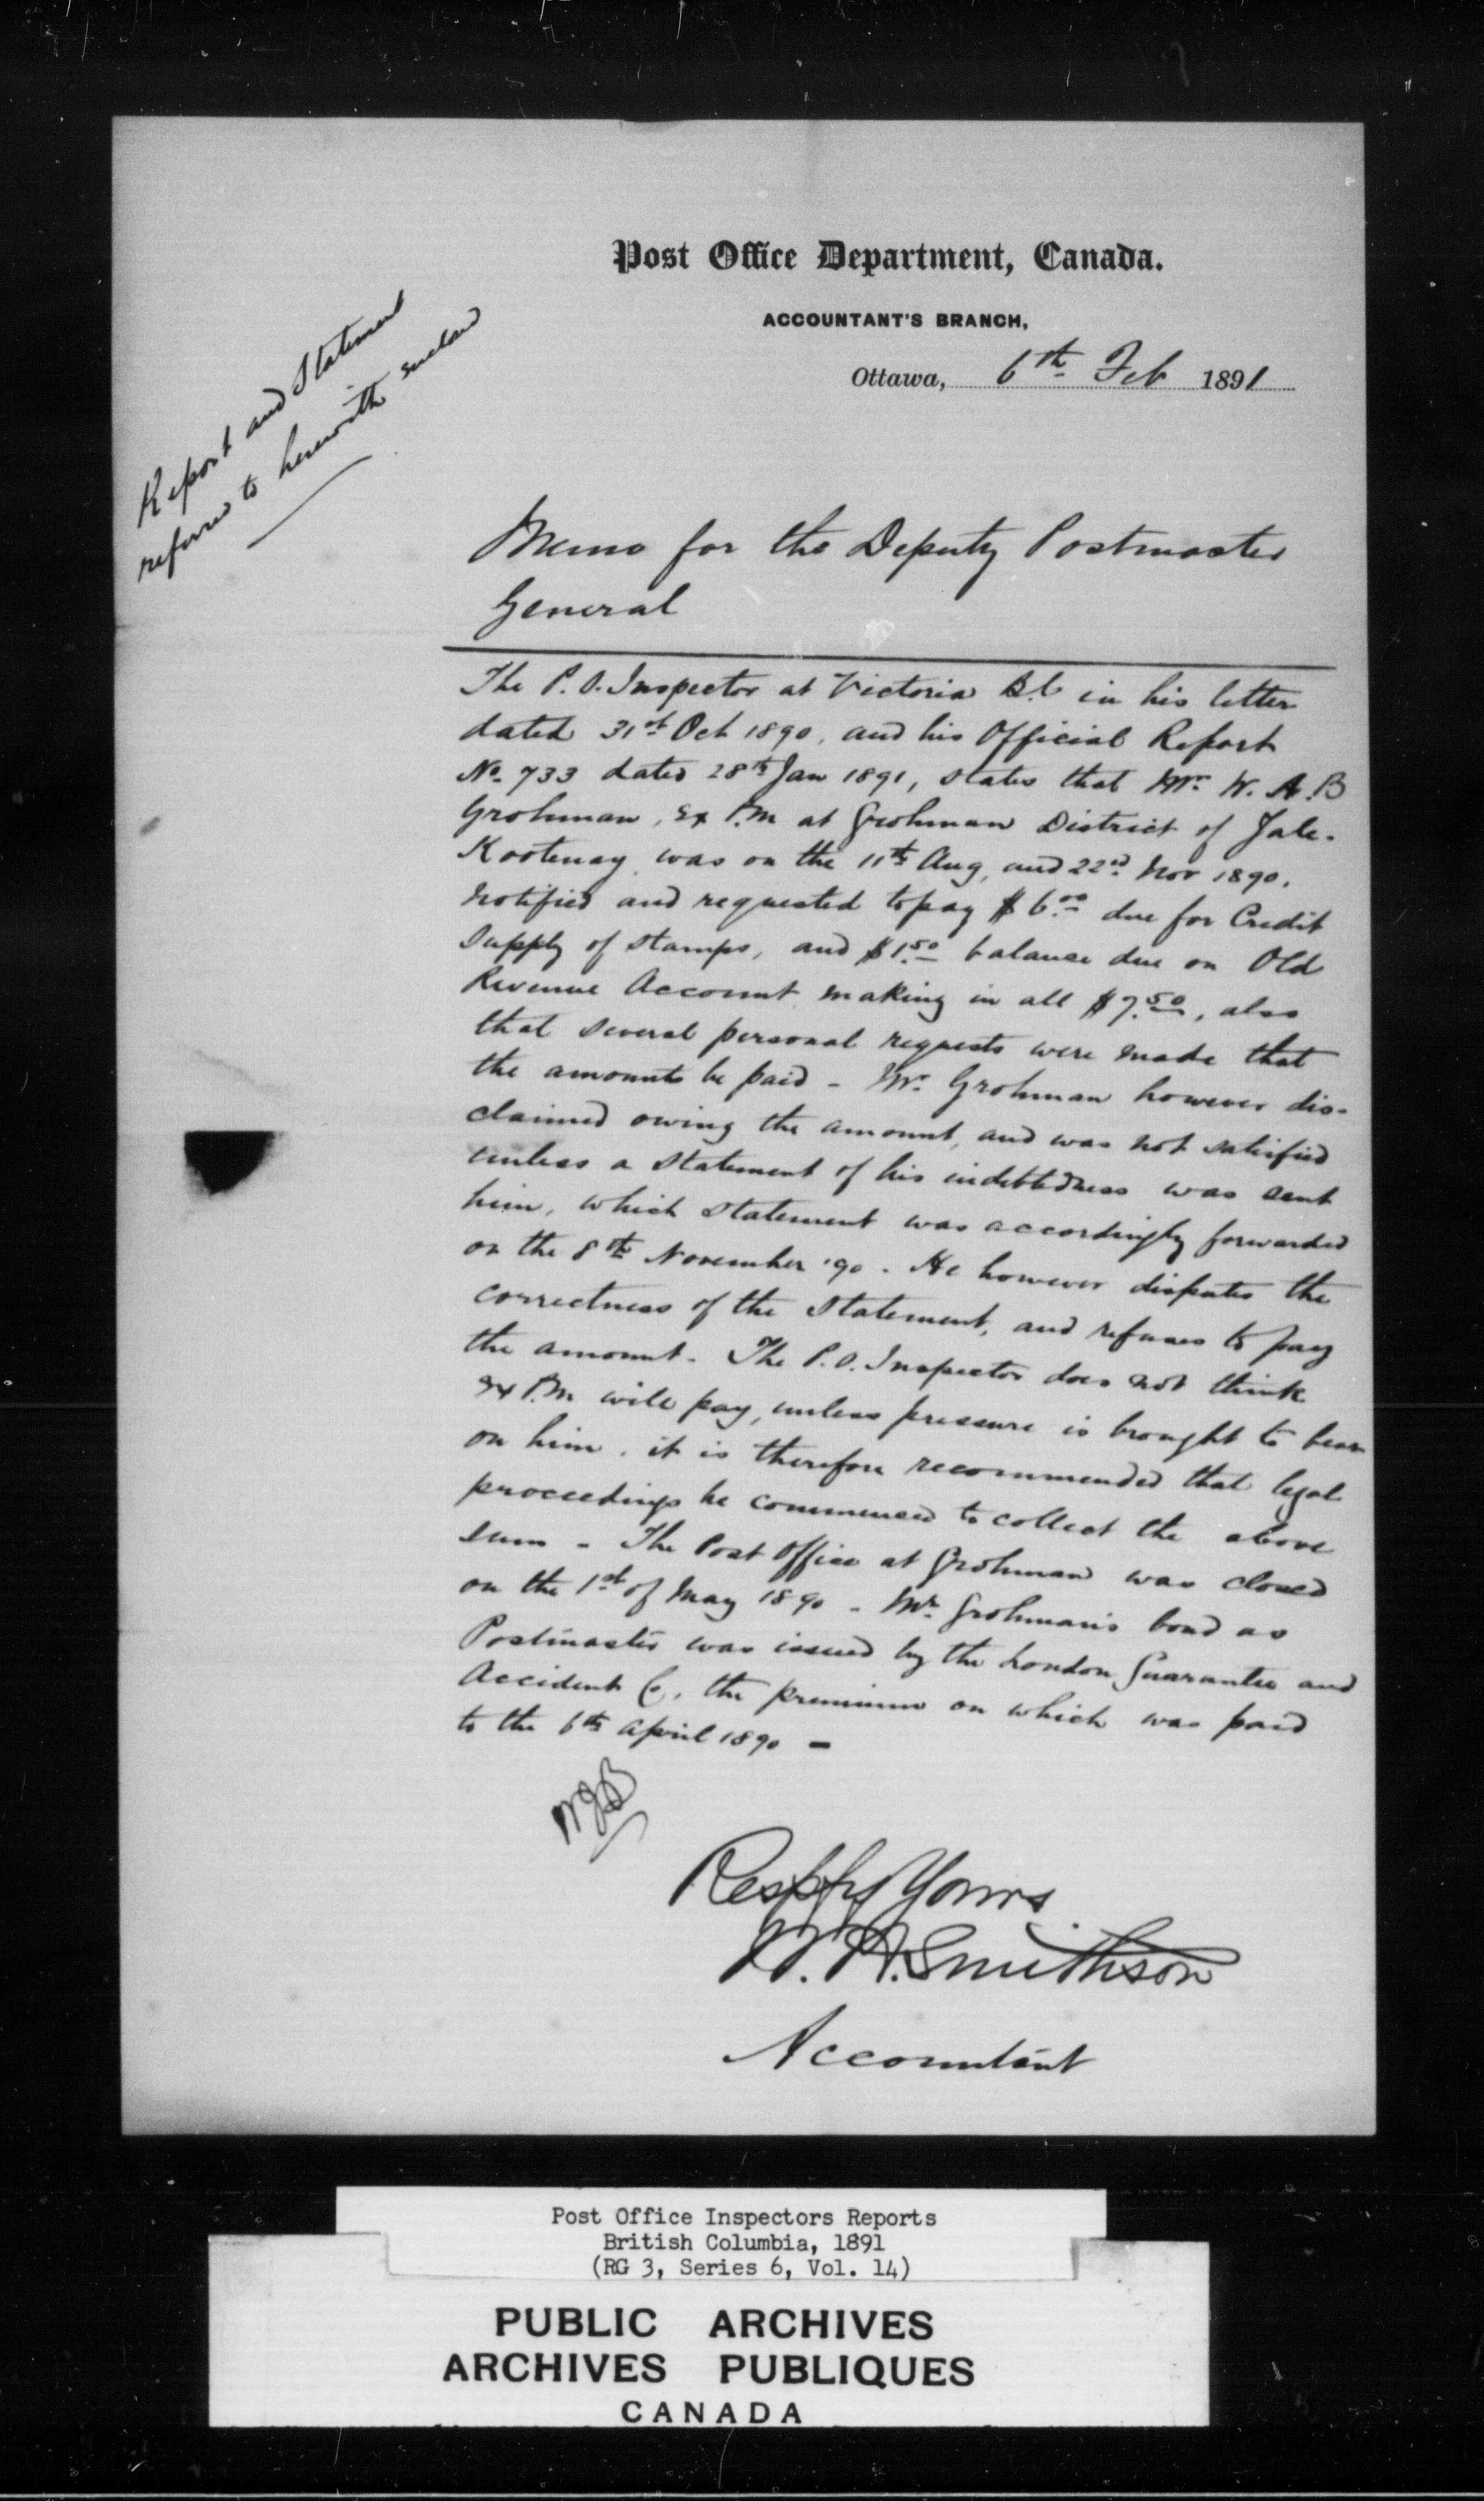 Post Office Department, Canada.
ACCOUNTANT'S BRANCH,
Ottawa, 6th Feb 1891
Report and Statement
referred to herewith enclosed
Memo for the Deputy Postmaster
General
The P.O. Inspector at Victoria B.C. in his letter
dated 31st Oct 1890, and his Official Report
No. 733 dated 28th Jan 1891, states that Mr. W. A. B
Grohman, Ex P.M at Grohman District of Yale-
Kootenay, was on the 11th Aug, and 22nd Nov 1890,
notified and requested to pay $6.00 due for Credit
supply of stamps, and $1.50 balance due on Old
Revenue Account making in all $7.50, also
that several personal requests were made that
the amounts be paid - Mr. Grohman however dis-
claimed owing the amount, and was not satisfied
unless a statement of his indebtedness was sent
him, which statement was accordingly forwarded
on the 8th November '90. He however disputes the
correctness of the statement, and refuses to pay
the amount. The P.O. Inspector does not think
Ex P.M will pay, unless pressure is brought to bear
on him, it is therefore recommended that legal
proceedings be commenced to collect the above
sum - The Post Office at Grohman was closed
on the 1st of May 1890 - Mr. Grohman's bond as
Postmaster was issued by the London Guarantee and
Accident Co, the premium on which was paid
to the 6th April 1890 -
Respfy Yours
W. H. Smithson
Accountant
Post Office Inspectors Reports
British Columbia, 1891
(RG 3, Series 6, Vol. 14)
PUBLIC ARCHIVES
ARCHIVES PUBLIQUES
CANADA